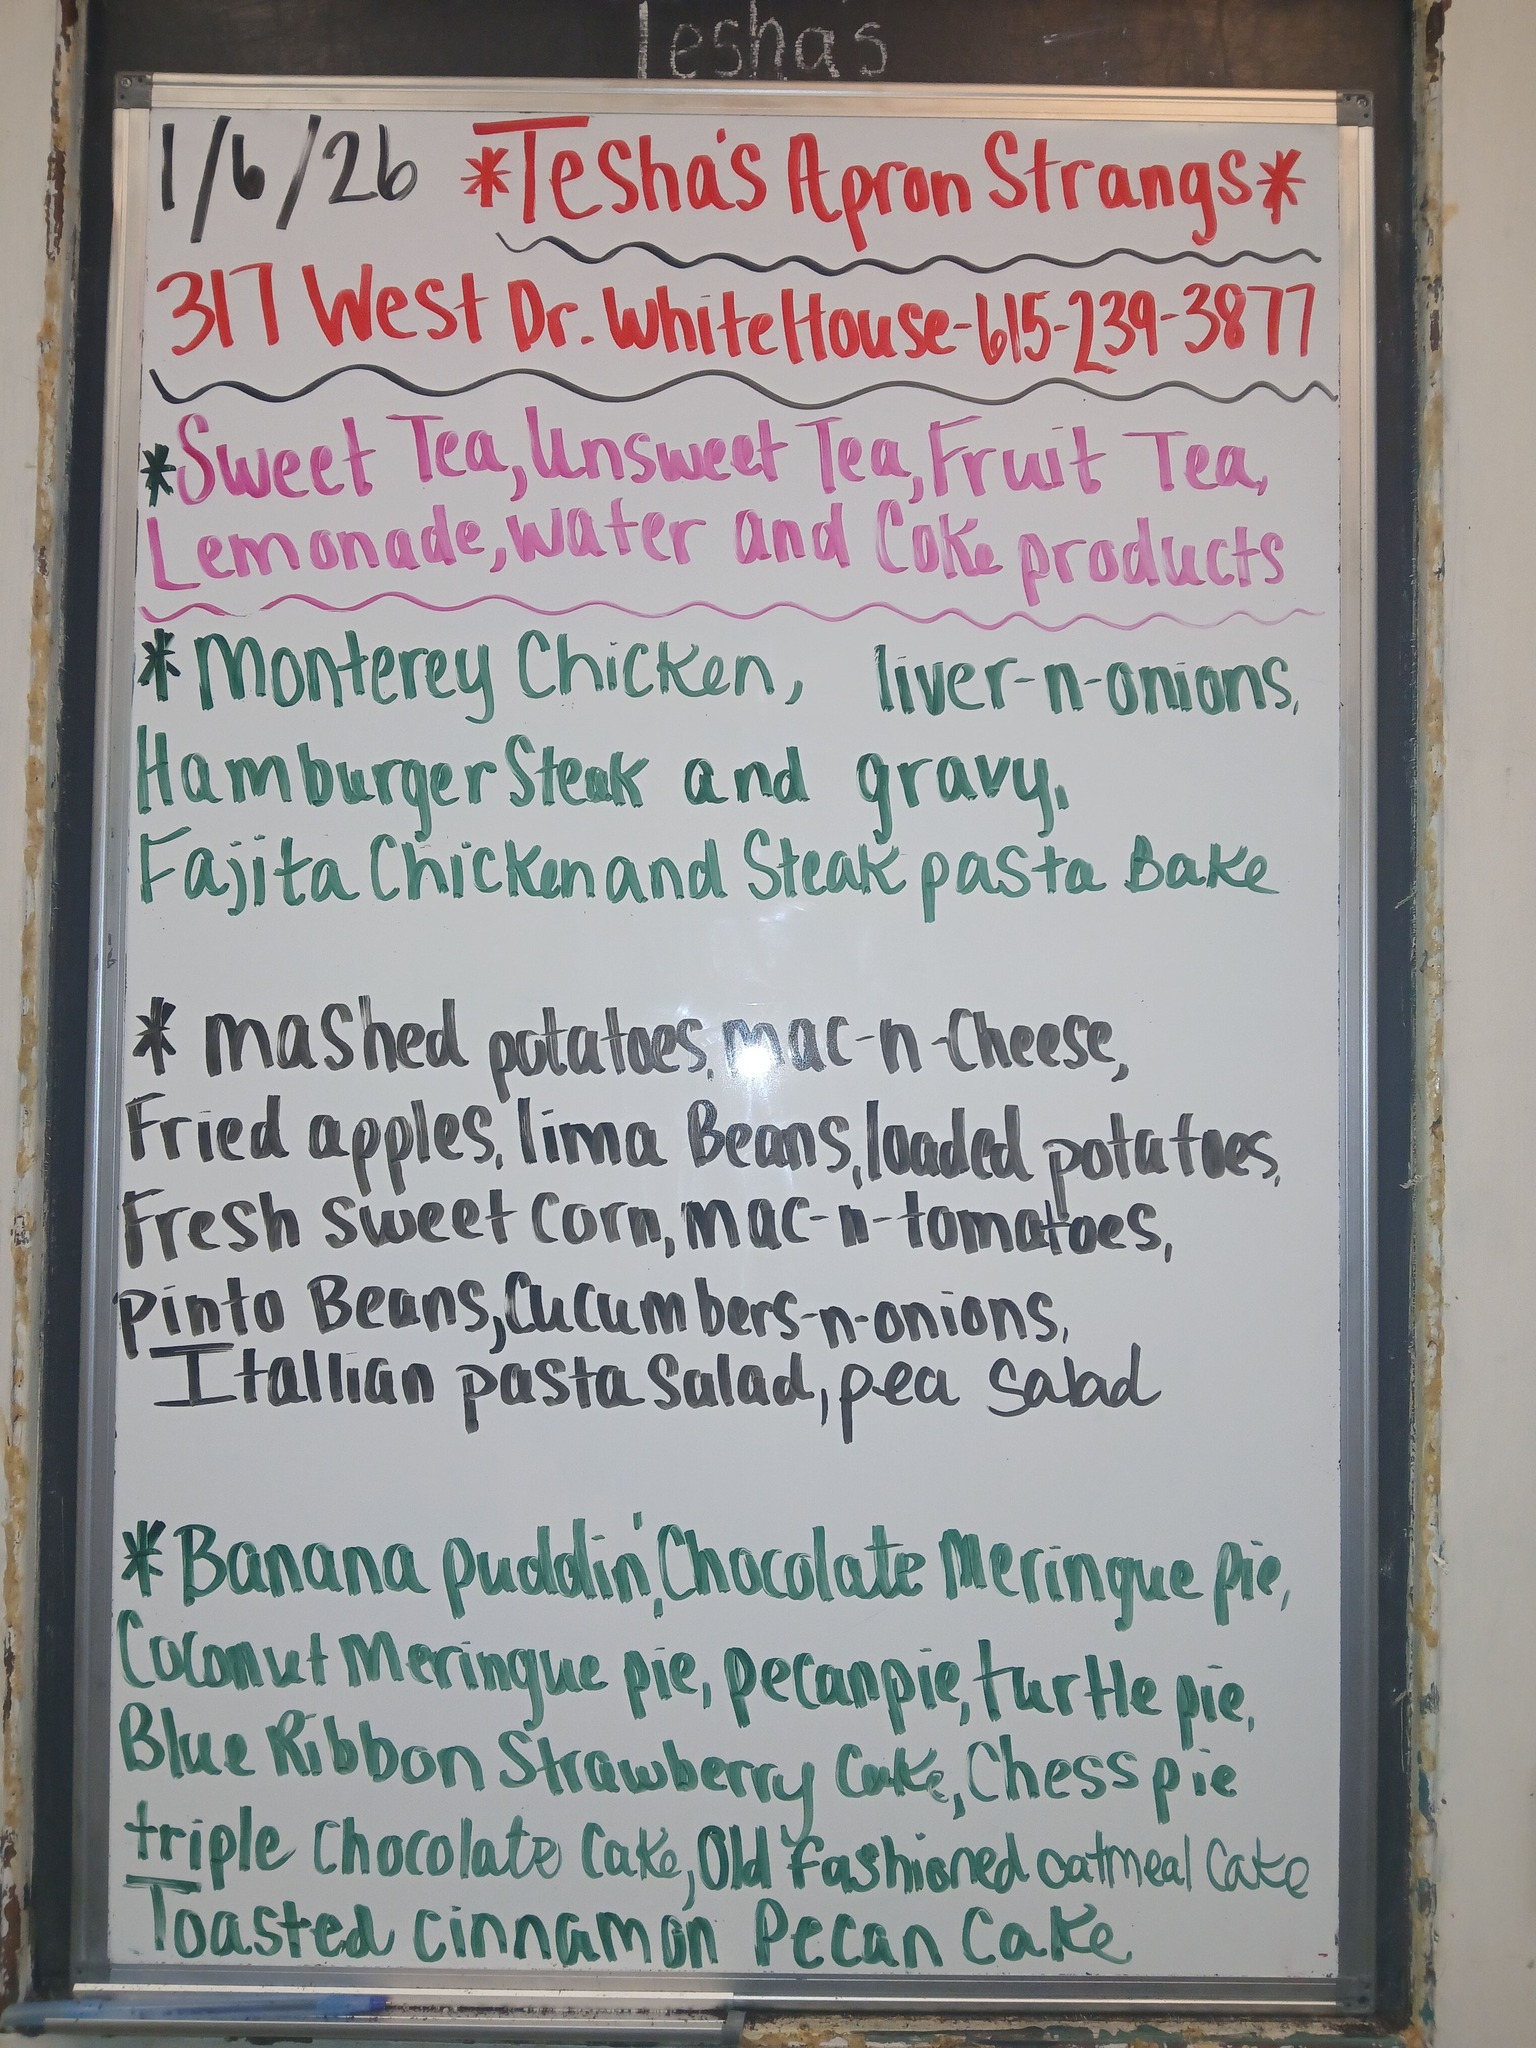 Tesha's
1/6/26 *Tesha's Apron Strangs*
317 West Dr. WhiteHouse-615-239-3877
*Sweet Tea, Unsweet Tea, Fruit Tea,
Lemonade, water and Coke products
*Monterey Chicken, liver-n-onions,
Hamburger Steak and gravy,
Fajita Chicken and Steak pasta Bake
* mashed potatoes, mac-n-Cheese,
Fried apples, lima Beans, loaded potatoes,
Fresh sweet corn, mac-n-tomatoes,
pinto Beans, Cucumbers-n-onions,
Itallian pasta salad, pea salad
*Banana puddin', Chocolate Meringue pie,
Coconut Meringue pie, pecan pie, turtle pie,
Blue Ribbon Strawberry Cake, Chess pie
triple Chocolate Cake, Old fashioned oatmeal Cake
Toasted cinnamon Pecan Cake